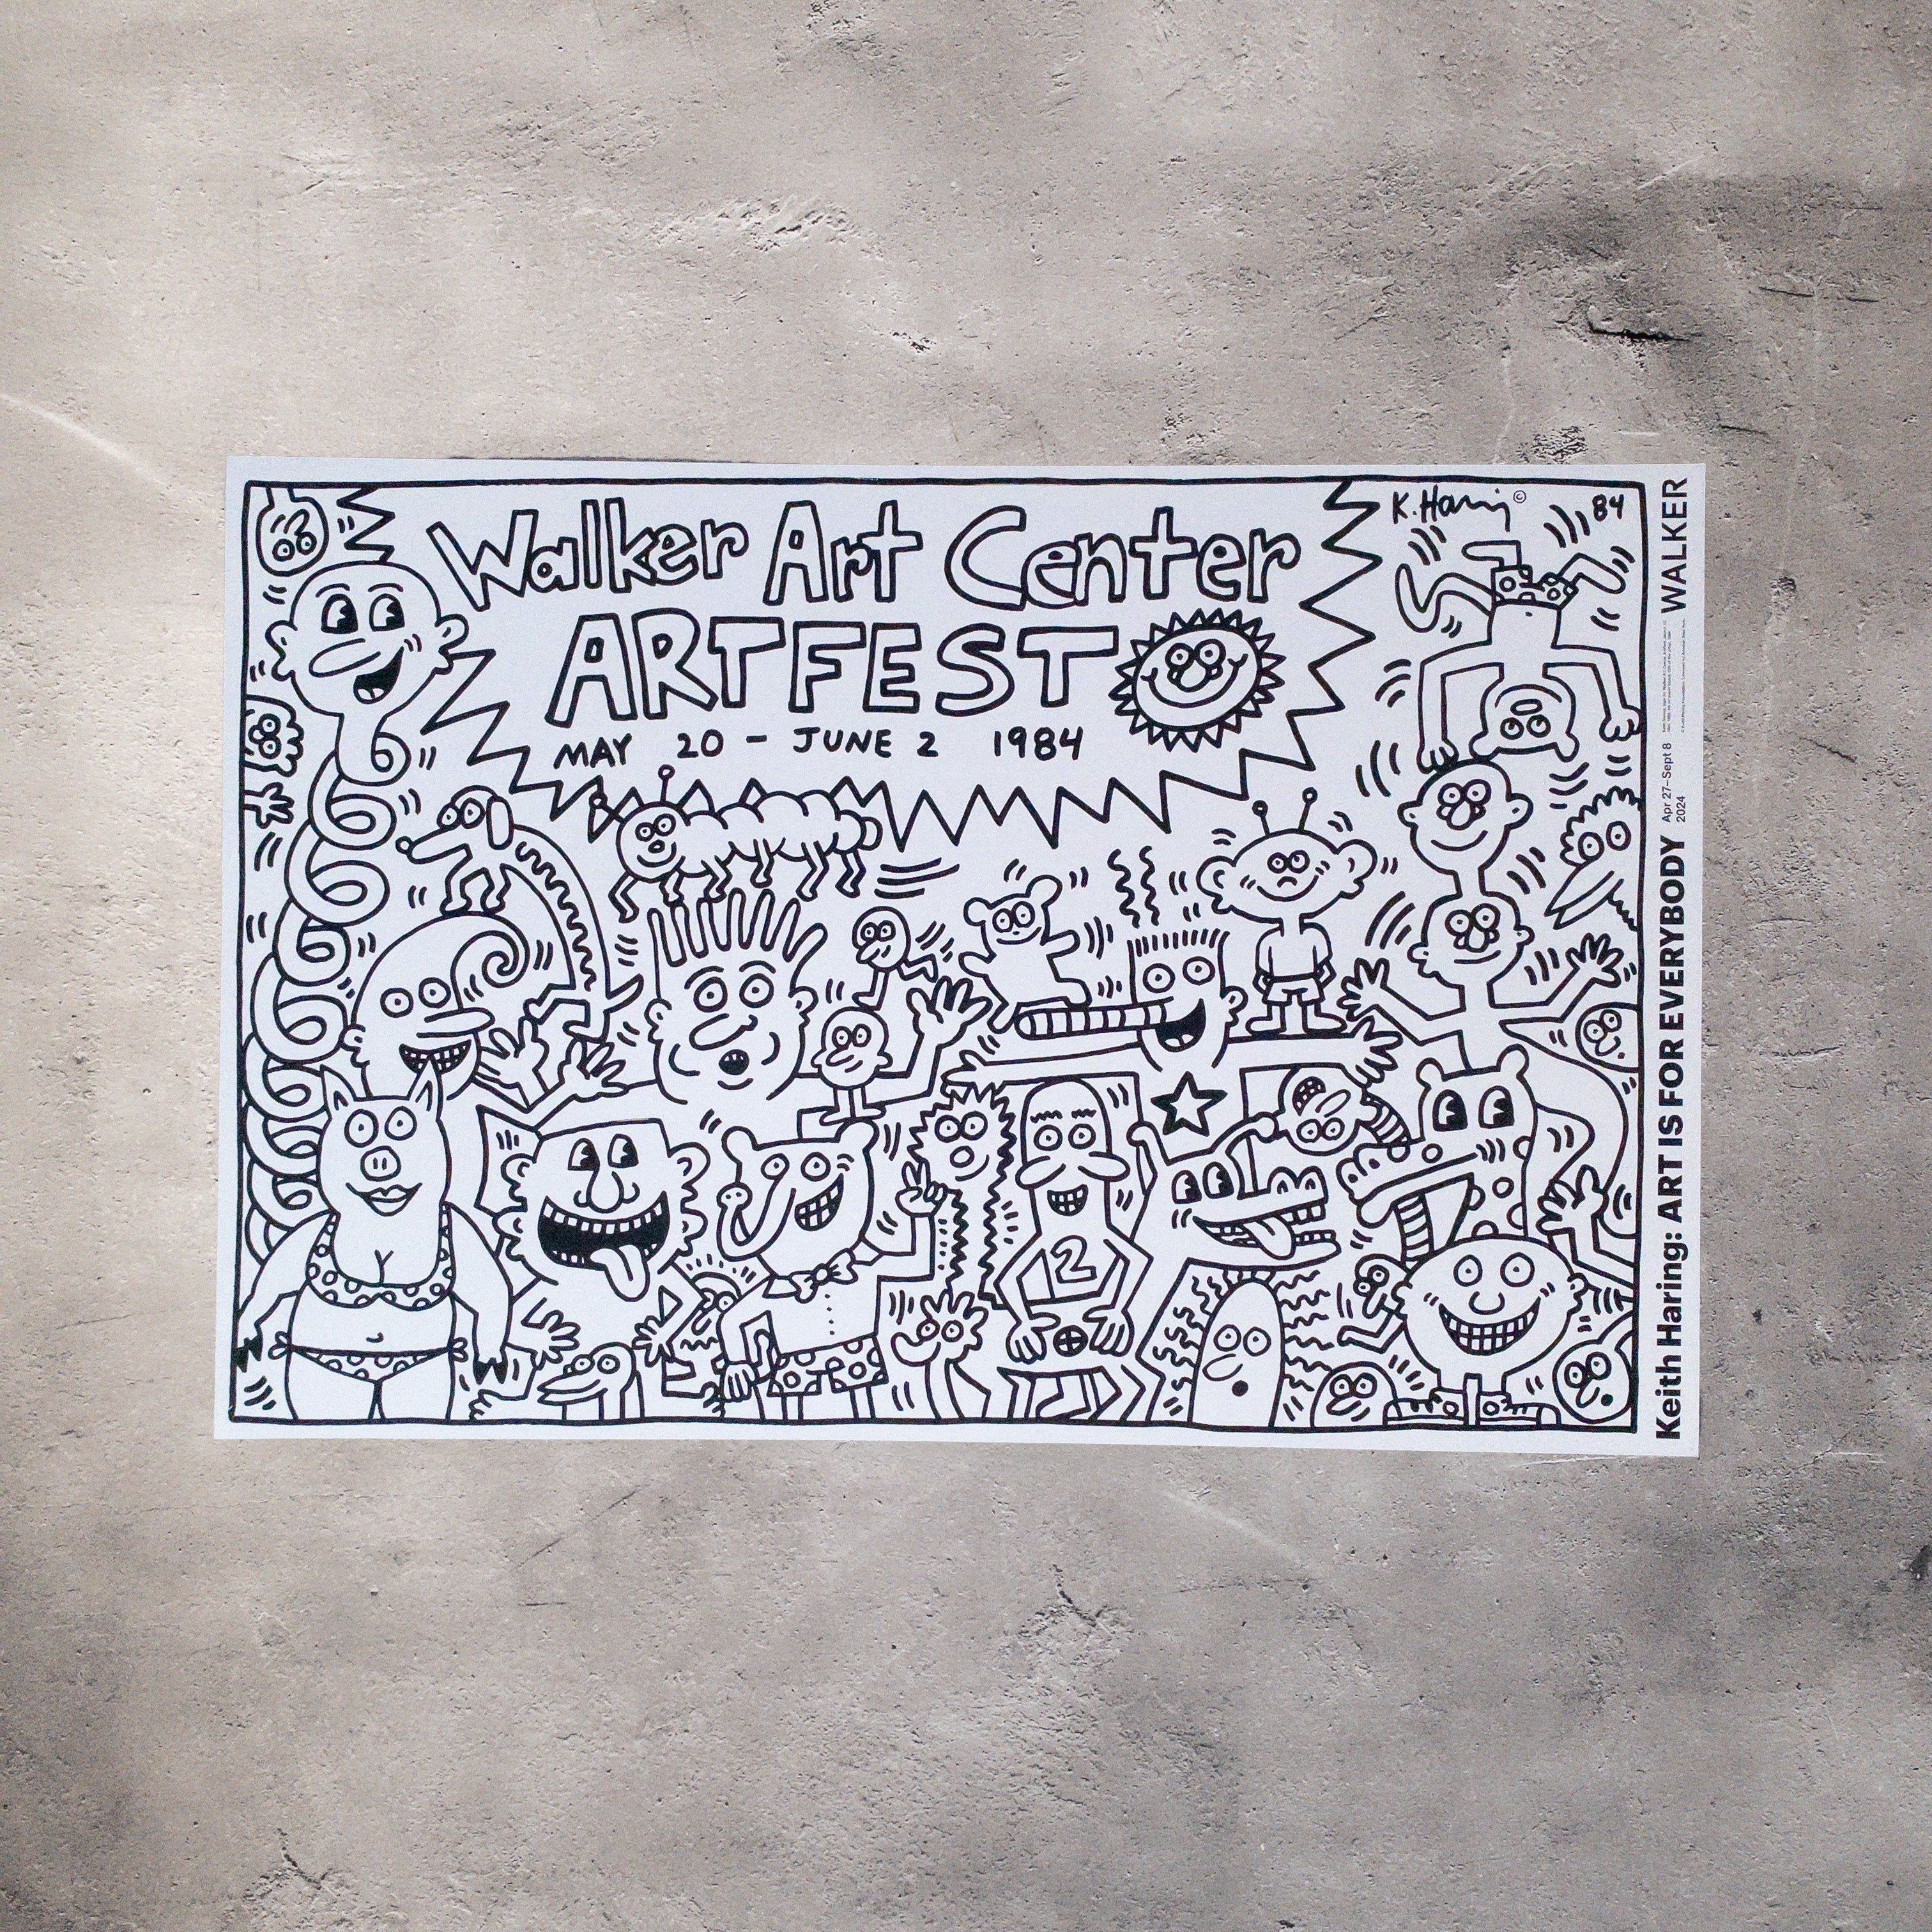 Walker Art Center
ARTFEST
MAY 20 - JUNE 2 1984
K. Haring © 84
2
Keith Haring: ART IS FOR EVERYBODY
Apr 27–Sept 8
2024
WALKER